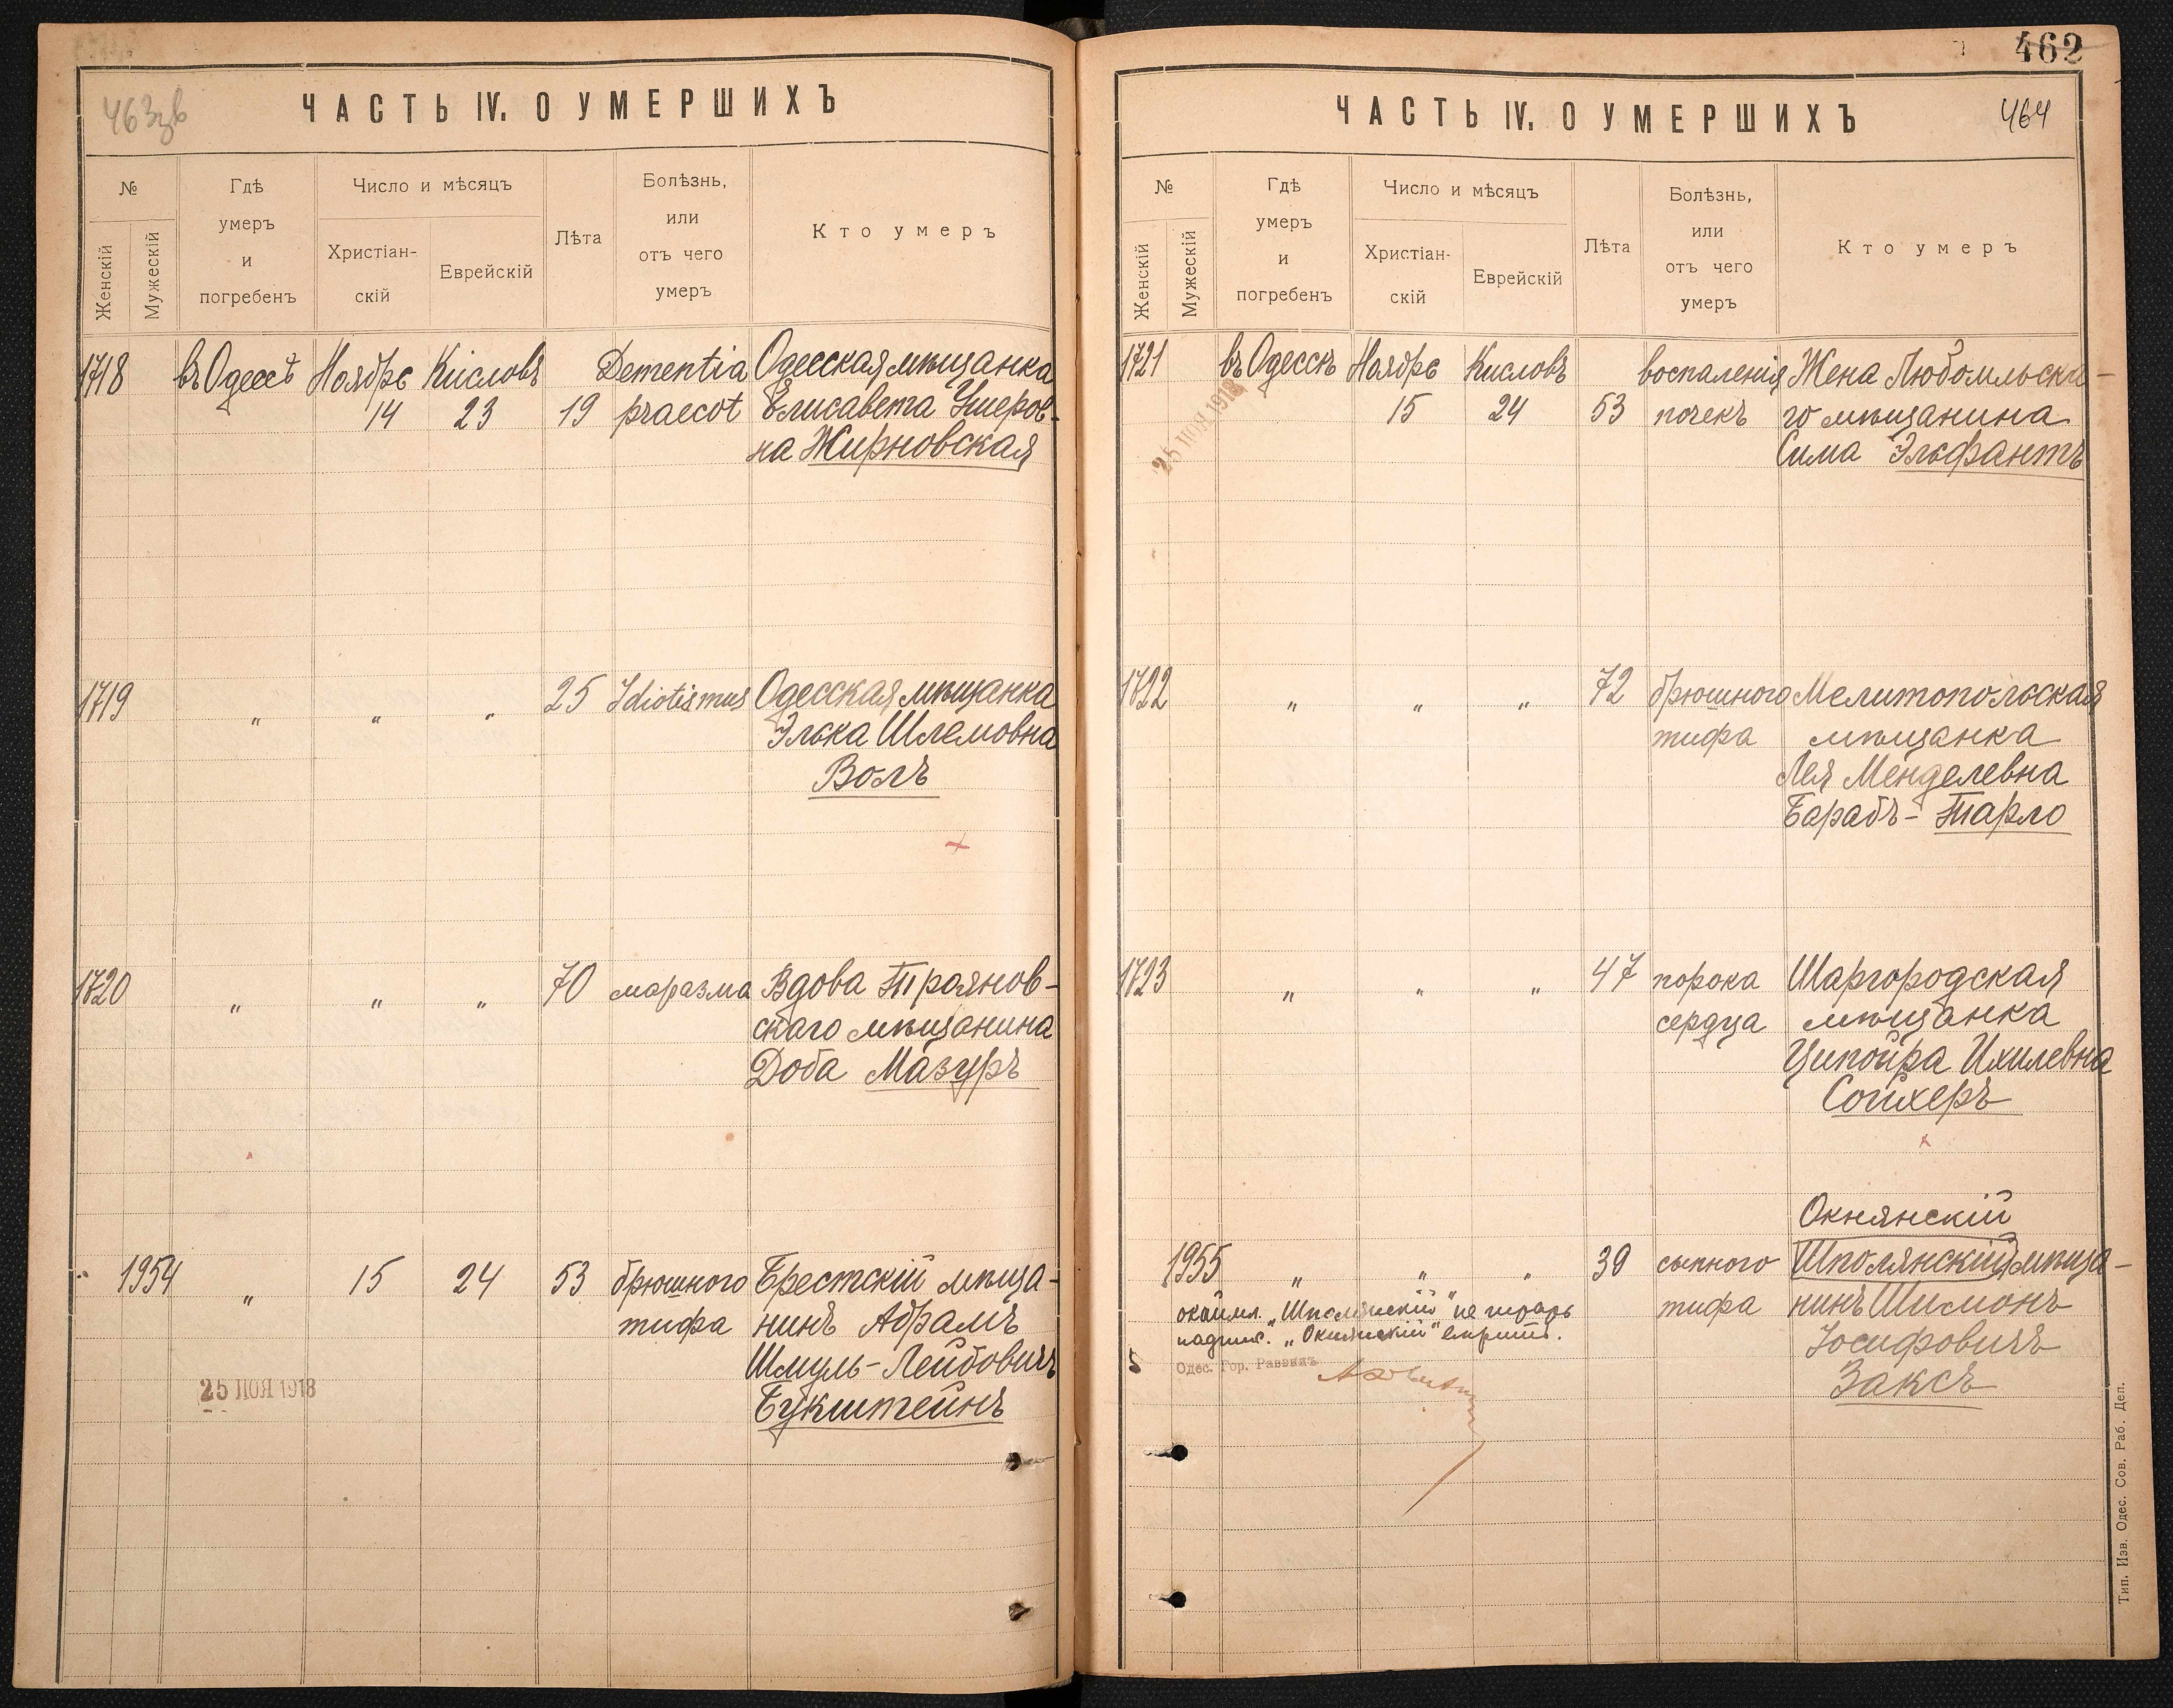 463зв
ЧАСТЬ IV. О УМЕРШИХЪ
№
Женскій
Мужескій
Гдѣ
умеръ
и
погребенъ
Число и мѣсяцъ
Христіан-
скій
Еврейскій
Лѣта
Болѣзнь,
или
отъ чего
умеръ
Кто умеръ
1718 въ Одессѣ Ноября Кисловъ Dementia Одесская мѣщанка
14 23 19 praecot Елисавета Ушеров-
на Жирновская
1719 " " " 25 Idiotismus Одесская мѣщанка
Элька Шлемовна
Волъ
1720 " " " 70 маразма Вдова Трояновскаго
скаго мѣщанина
Доба Мазуръ
1954 " 15 24 53 брюшного Брестскій мѣща-
тифа нинъ Абрамъ
Шмуль-Лейбовичъ
Букштейнъ
25 НОЯ 1918
462
464
ЧАСТЬ IV. О УМЕРШИХЪ
№
Женскій
Мужескій
Гдѣ
умеръ
и
погребенъ
Число и мѣсяцъ
Христіан-
скій
Еврейскій
Лѣта
Болѣзнь,
или
отъ чего
умеръ
Кто умеръ
1721 въ Одессѣ Ноября Кисловъ воспаленія Жена Любомльска-
15 24 53 почекъ го мѣщанина
Сима Эльфантъ
25 НОЯ 1918
1722 " " " 72 брюшного Мелитопольская
тифа мѣщанка
Лея Менделевна
Барабъ-Тарло
1723 " " " 47 порока Шаргородская
сердца мѣщанка
Ципойра Ихилевна
Сойхеръ
Окнянскій
1955 " " " 39 сыпного Шполянскій мѣща-
тифа нинъ Шимонъ
Іосифовичъ
Заксъ
окаймл. „Шполянскій" не
надпис. „Окнянскій"
Одес. Гор. Раввинъ
Тип. Изв. Одес. Сов. Раб. Деп.